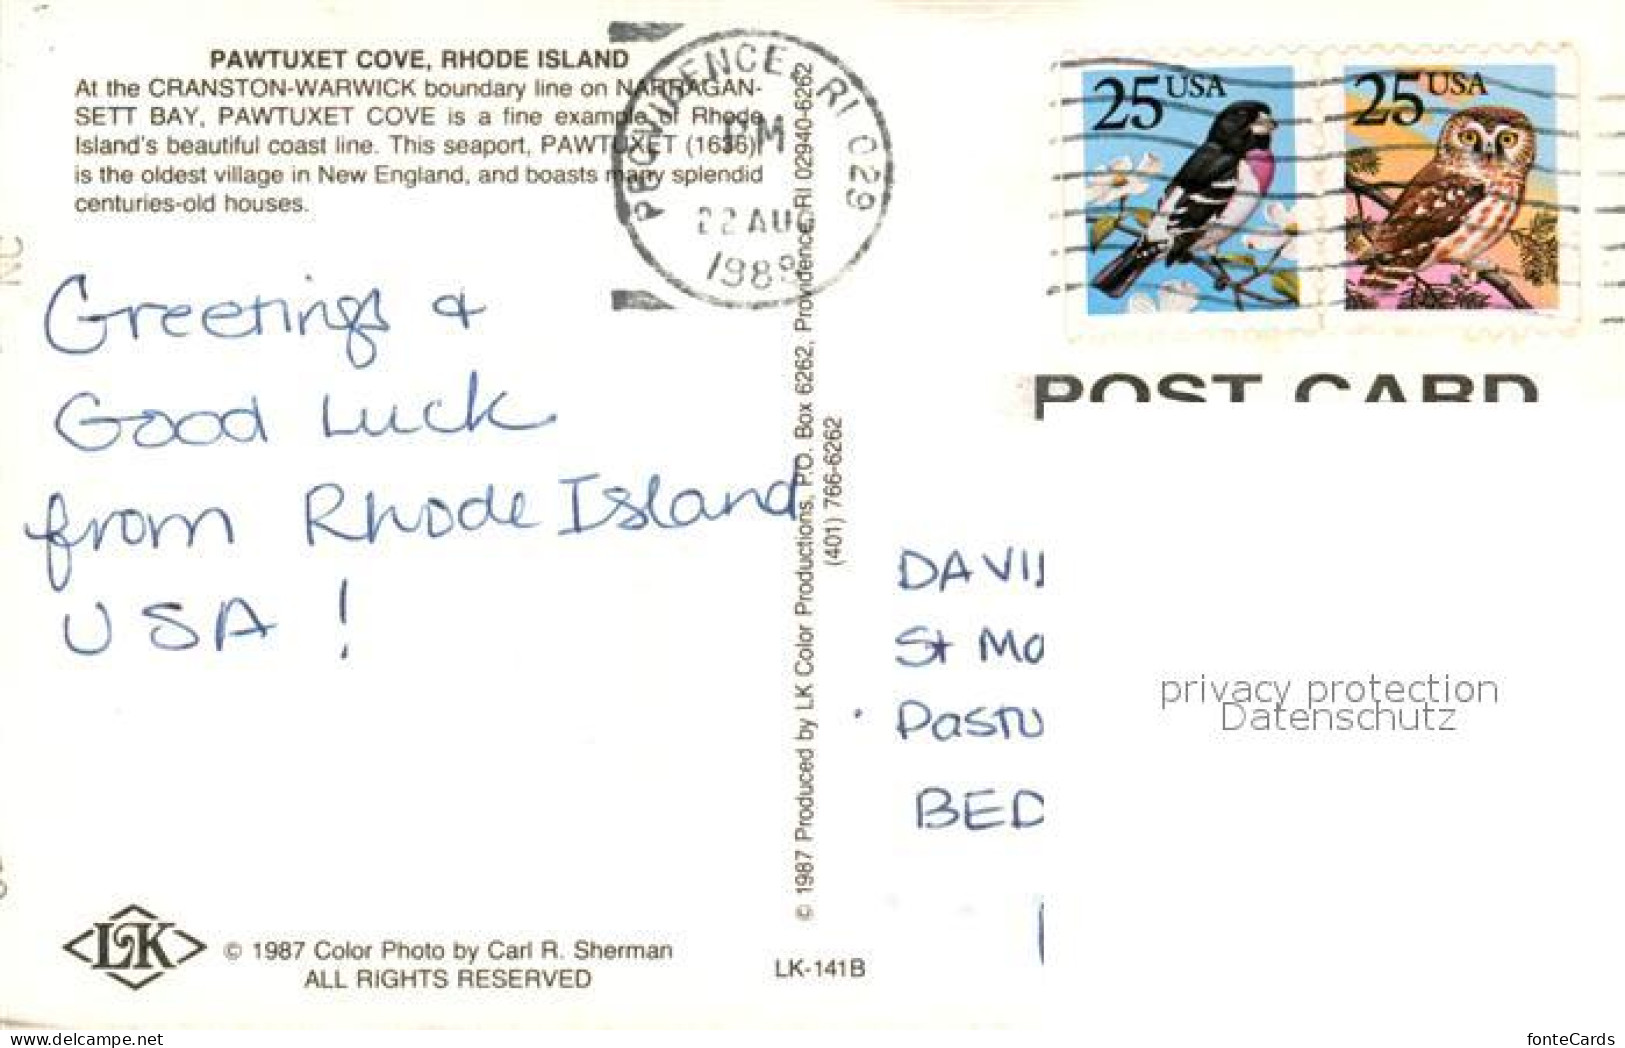 PAWTUXET COVE, RHODE ISLAND
At the CRANSTON-WARWICK boundary line on NARRAGAN-
SETT BAY, PAWTUXET COVE is a fine example of Rhode
Island's beautiful coast line. This seaport, PAWTUXET (1636)
is the oldest village in New England, and boasts many splendid
centuries-old houses.
PROVIDENCE, RI 029
PM
22 AUG
198
25 USA
25 USA
POST CARD
Greetings &
Good Luck
from Rhode Island
USA !
© 1987 Produced by LK Color Productions, P.O. Box 6262, Providence, RI 02940-6262
(401) 766-6262
DAVI
St Mo
Pastu
BED
privacy protection
Datenschutz
LK
© 1987 Color Photo by Carl R. Sherman
ALL RIGHTS RESERVED
LK-141B
www.delcampe.net
fonteCards